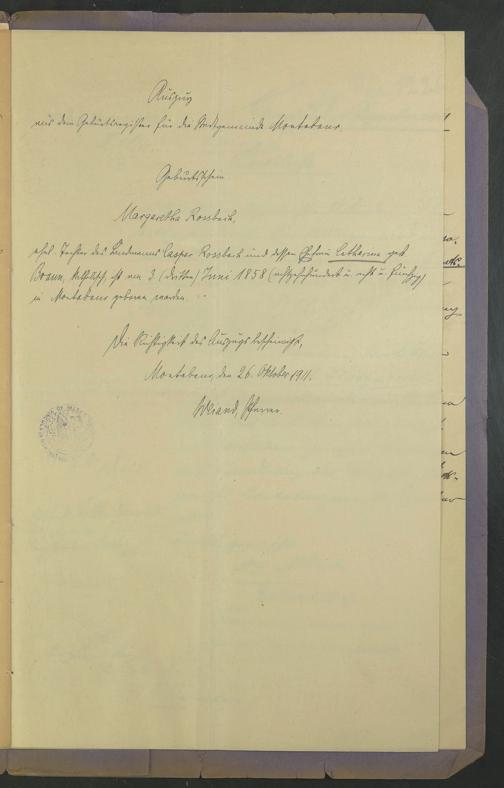 Auszug
aus dem Geburtsregister für die Stadtgemeinde Montabaur.
Geburtsschein
Margaretha Rossbach,
ehel. Tochter des Landmanns Caspar Rossbach und dessen Ehefrau Catharina geb.
Braun, katholisch, ist am 3. (dritten) Juni 1858 (achtzehnhundert u. acht u. fünfzig)
in Montabaur geboren worden.
Die Richtigkeit des Auszugs bescheinigt,
Montabaur, den 26. Oktober 1911.
Pfarrer.